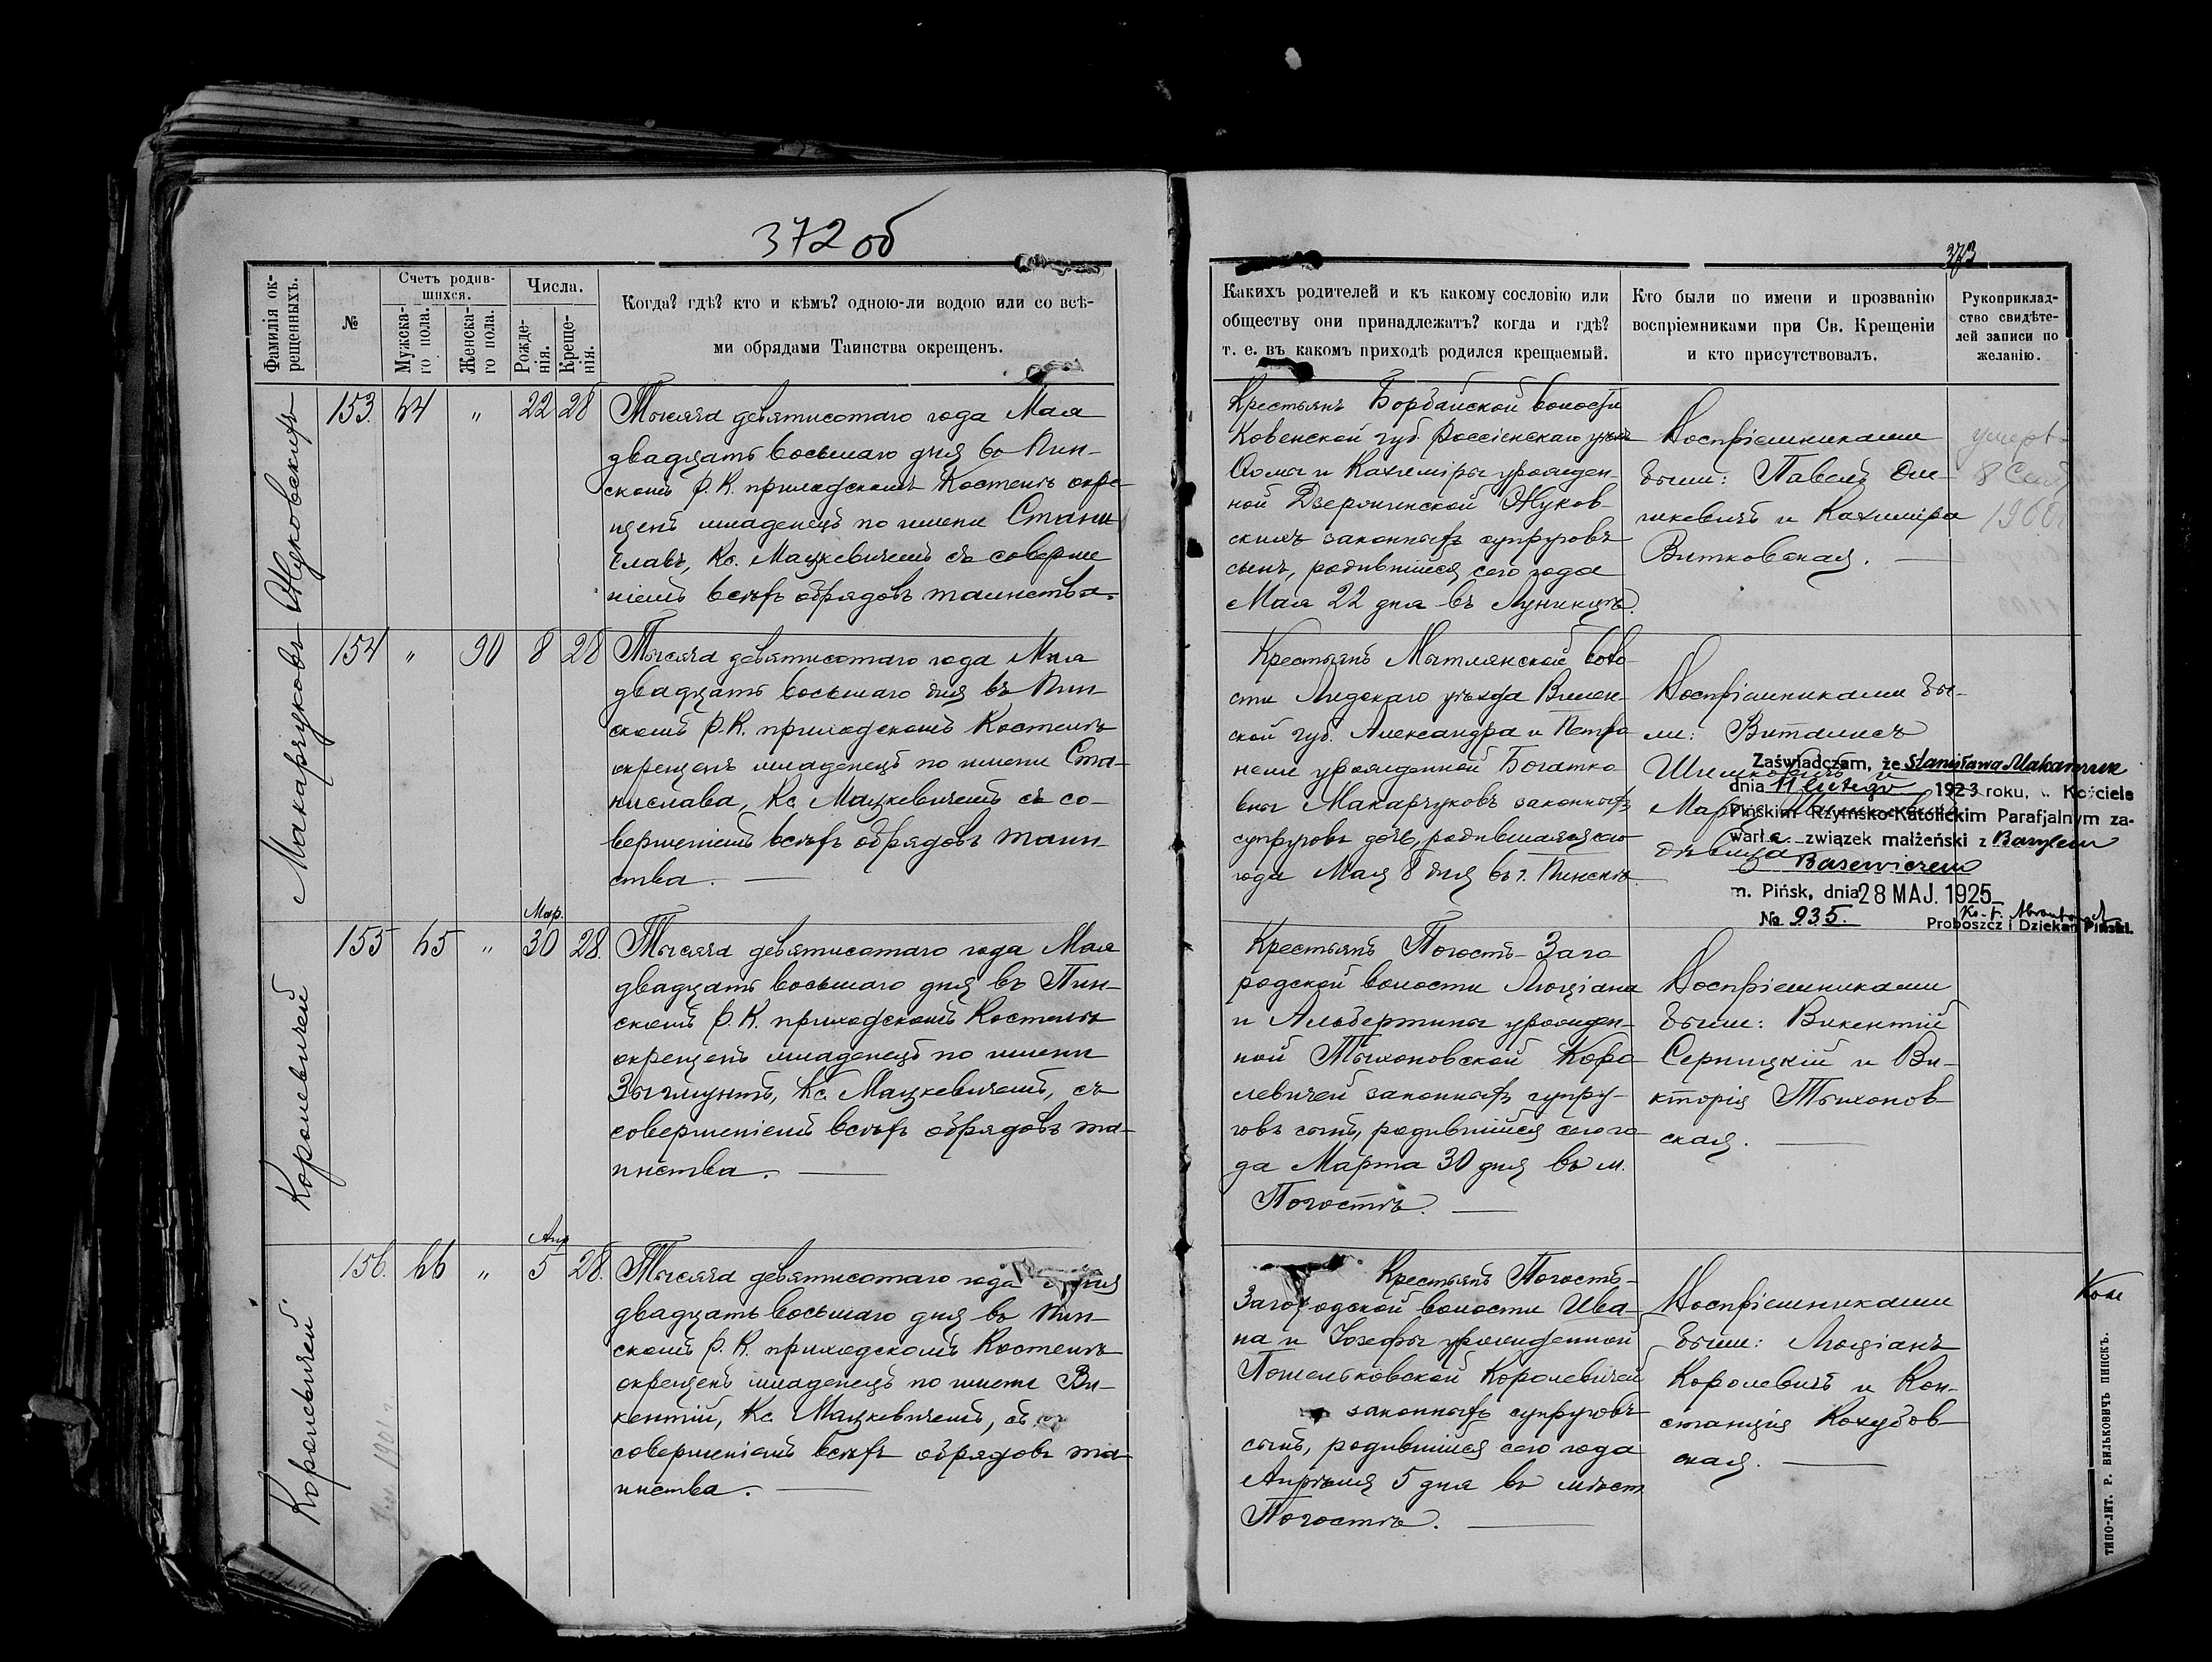 372 об
Фамилія ок-
рещенныхъ.
№
Счетъ родив-
шихся.
Мужска-
го пола.
Женска-
го пола.
Числа.
Рожде-
нія.
Креще-
нія.
Когда? гдѣ? кто и кѣмъ? одною-ли водою или со всѣ-
ми обрядами Таинства окрещенъ.
Жуковскихъ
153. 64 " 22 28
Тысяча девятисотаго года Мая
двадцать восьмаго дня во Пин-
скомъ Р. К. приходскомъ Костелѣ окре-
щенъ младенецъ по имени Стани
славъ, Кс. Мацкевичемъ съ соверше
ніемъ всѣхъ обрядовъ таинства.
Макарчуковъ
154 " 90 8 28
Тысяча девятисотаго года Мая
двадцать восьмаго дня въ Пин-
скомъ Р. К. приходскомъ Костелѣ
окрещенъ младенецъ по имени Ста-
нислава, Кс. Мацкевичемъ съ со-
вершеніемъ всѣхъ обрядовъ таин-
ства.
Королевичей
155 65 " Мар. 30 28.
Тысяча девятисотаго года Мая
двадцать восьмаго дня въ Пин-
скомъ Р. К. приходскомъ Костелѣ
окрещенъ младенецъ по имени
Зыгмунтъ, Кс. Мацкевичемъ, съ
совершеніемъ всѣхъ обрядовъ та-
инства.
Королевичей
156. 66 " Апр 5 28.
Тысяча девятисотаго года
двадцать восьмаго дня во Пин-
скомъ Р. К. приходскомъ Костелѣ
окрещенъ младенецъ по имени Ви-
кентій, Кс. Мацкевичемъ, съ
совершеніемъ всѣхъ обрядовъ та-
инства.
373
Какихъ родителей и къ какому сословію или
обществу они принадлежатъ? когда и гдѣ?
т. е. въ какомъ приходѣ родился крещаемый.
Кто были по имени и прозванію
воспріемниками при Св. Крещеніи
и кто присутствовалъ.
Рукоприклад-
ство свидѣте-
лей записи по
желанію.
Крестьянъ волости
Ковенской губ. Россіенскаго уѣзда
и Казиміры урожден-
ной Жуков-
скихъ законныхъ супруговъ
сынъ, родившійся сего года
Мая 22 дня въ Лунинцѣ.
Воспріемниками
были: Павелъ
и Казиміра
Витковская.
умеръ
8
Крестьянъ Мытлянской воло-
сти Лидскаго уѣзда Вилен-
ской губ. Александра и Петро
нели урожденной Богатко
Макарчуковъ законныхъ
супруговъ дочь, родившаяся сего
года Мая 8 дня въ г. Пинскѣ.
Воспріемниками бы-
ли:
дѣвица
Zaświadczam, że Stanisława Makarczuk
dnia 11 lutego 1923 roku, w Kościele
Pińskim Rzymsko-Katolickim Parafjalnym za-
warła związek małżeński z Bazylem
Basewiczem
m. Pińsk, dnia 28 MAJ. 1925
№ 935.
Proboszcz i Dziekan Piński.
Крестьянъ Погостъ-Заго
родской волости Люціана
и Альбертины урожден-
ной Тыхоновской Коро
левичей законныхъ супру-
говъ сынъ, родившійся сего го
да Марта 30 дня въ м.
Погостѣ.
Воспріемниками
были: Викентій
Серницкій и Ви-
кторія Тыхонов-
ская.
Крестьянъ Погостъ-
Загородской волости Ива-
на и Іозефы урожденной
Королевичей
законныхъ супруговъ
сынъ, родившійся сего года
Апрѣля 5 дня въ мѣст
Погостѣ.
Воспріемниками
были: Люціанъ
Королевичъ и Кон-
станція
ская.
ТИПО-ЛИТ. Р. ВИЛЬКОВИЧЪ ПИНСКЪ.